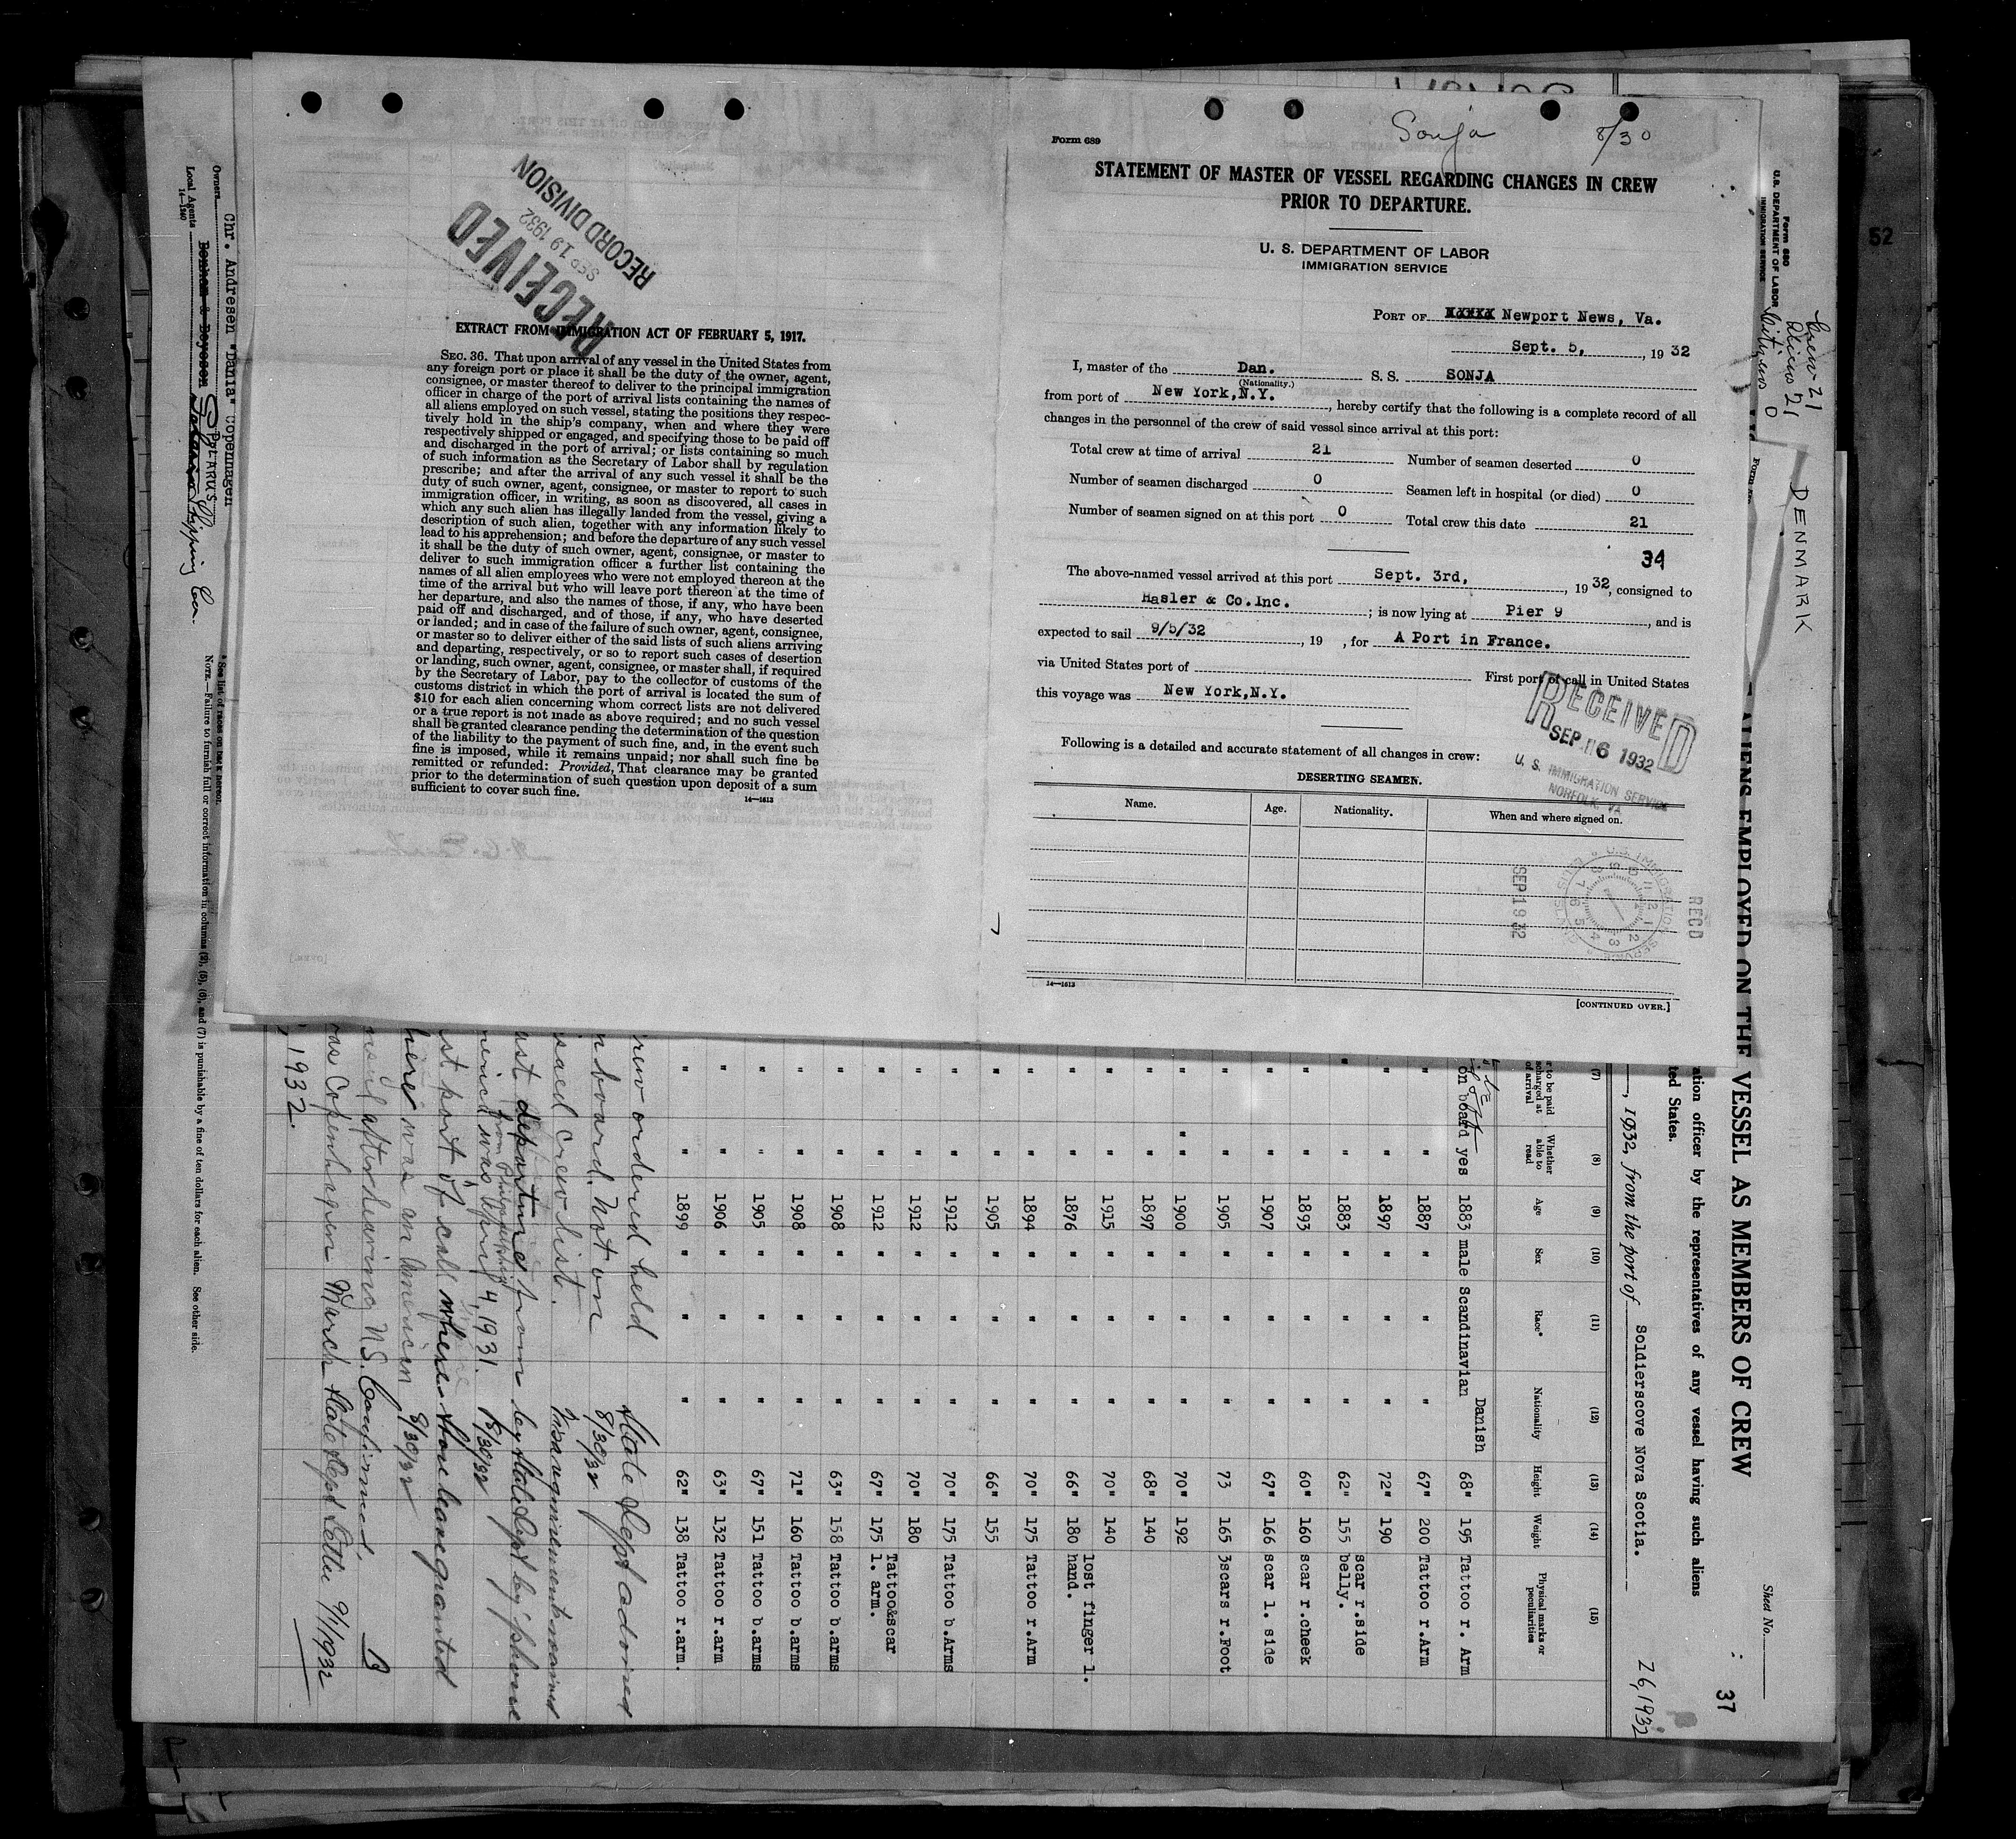 Sonja 8/30
Form 689
STATEMENT OF MASTER OF VESSEL REGARDING CHANGES IN CREW
PRIOR TO DEPARTURE.
U. S. DEPARTMENT OF LABOR
IMMIGRATION SERVICE
PORT OF Newport News, Va.
Sept. 5, , 19 32
I, master of the Dan. S. S. SONJA
(Nationality.)
from port of New York,N.Y. , hereby certify that the following is a complete record of all
changes in the personnel of the crew of said vessel since arrival at this port:
Total crew at time of arrival 21 Number of seamen deserted 0
Number of seamen discharged 0 Seamen left in hospital (or died) 0
Number of seamen signed on at this port 0 Total crew this date 21
34
The above-named vessel arrived at this port Sept. 3rd, , 19 32, consigned to
Hasler & Co.Inc. ; is now lying at Pier 9 , and is
expected to sail 9/5/32 , 19 , for A Port in France.
via United States port of First port of call in United States
this voyage was New York,N.Y.
RECEIVED
SEP 6 1932
U. S. IMMIGRATION SERVICE
NORFOLK, VA
Following is a detailed and accurate statement of all changes in crew:
DESERTING SEAMEN.
Name. Age. Nationality. When and where signed on.
SEP 19 32
REC'D
14—1613
[CONTINUED OVER.]
RECEIVED
SEP 19 1932
RECORD DIVISION
EXTRACT FROM IMMIGRATION ACT OF FEBRUARY 5, 1917.
SEC. 36. That upon arrival of any vessel in the United States from
any foreign port or place it shall be the duty of the owner, agent,
consignee, or master thereof to deliver to the principal immigration
officer in charge of the port of arrival lists containing the names of
all aliens employed on such vessel, stating the positions they respec-
tively hold in the ship's company, when and where they were
respectively shipped or engaged, and specifying those to be paid off
and discharged in the port of arrival; or lists containing so much
of such information as the Secretary of Labor shall by regulation
prescribe; and after the arrival of any such vessel it shall be the
duty of such owner, agent, consignee, or master to report to such
immigration officer, in writing, as soon as discovered, all cases in
which any such alien has illegally landed from the vessel, giving a
description of such alien, together with any information likely to
lead to his apprehension; and before the departure of any such vessel
it shall be the duty of such owner, agent, consignee, or master to
deliver to such immigration officer a further list containing the
names of all alien employees who were not employed thereon at the
time of the arrival but who will leave port thereon at the time of
her departure, and also the names of those, if any, who have been
paid off and discharged, and of those, if any, who have deserted
or landed; and in case of the failure of such owner, agent, consignee,
or master so to deliver either of the said lists of such aliens arriving
and departing, respectively, or so to report such cases of desertion
or landing, such owner, agent, consignee, or master shall, if required
by the Secretary of Labor, pay to the collector of customs of the
customs district in which the port of arrival is located the sum of
$10 for each alien concerning whom correct lists are not delivered
or a true report is not made as above required; and no such vessel
shall be granted clearance pending the determination of the question
of the liability to the payment of such fine, and, in the event such
fine is imposed, while it remains unpaid; nor shall such fine be
remitted or refunded: Provided, That clearance may be granted
prior to the determination of such question upon deposit of a sum
sufficient to cover such fine.
14—1613
52
Form 680
U.S. DEPARTMENT OF LABOR
IMMIGRATION SERVICE
Crew 21
Aliens 21
Citizens 0
DENMARK
Sheet No.
37
ALIENS EMPLOYED ON THE VESSEL AS MEMBERS OF CREW
ation officer by the representatives of any vessel having such aliens
ted States.
, 1932, from the port of Soldierscove Nova Scotia.
26, 1932
(7) (8) (9) (10) (11) (12) (13) (14) (15)
to be paid
scharged at
of arrival
Whether able to read
Age
Sex
Race*
Nationality
Height
Weight
Physical marks or peculiarities
on board yes 1883 male Scandinavian Danish 68" 195 Tattoo r. Arm
" " 1887 " " " 67" 200 Tattoo r.Arm
" " 1897 " " " 72" 190
" " 1883 " " " 62" 155 scar r.side belly.
" " 1893 " " " 60" 160 scar r.cheek
" " 1907 " " " 67" 166 scar l. side
" " 1905 " " " 73 165 3scars r.Foot
" " 1900 " " " 70" 192
" " 1897 " " " 68" 140
" " 1915 " " " 70" 140
" " 1876 " " " 66" 180 lost finger l. hand.
" " 1894 " " " 70" 175 Tattoo r.Arm
" " 1905 " " " 66" 155
" " 1912 " " " 70" 175 Tattoo b.Arms
" " 1912 " " " 70" 180
" " 1912 " " " 67" 175 Tattoo&scar l. arm.
" " 1908 " " " 63" 158 Tattoo b.arms
" " 1908 " " " 71" 160 Tattoo b.arms
" " 1905 " " " 67" 151 Tattoo b.arms
" " 1906 " " " 63" 132 Tattoo r.arm
" " 1899 " " " 62" 138 Tattoo r.arm.
crew ordered held
on board. Not on
visaed crew list.
last departure from
from Philadelphia
America was April 4, 1931.
last port of call where
there was an American
consul after hearing N.S.
was Copenhagen March
, 1932.
State Dept advised
8/30/32
Visa requirements waived
by State Dept by 'phone
8/30/32
Shore leave granted
8/30/32
Confirmed.
State Dept Letter 9/1/1932
* See list of races on back hereof.
NOTE.—Failure to furnish full or correct information in columns (3), (5), (6), and (7) is punishable by a fine of ten dollars for each alien. See other side.
Chr. Andresen "Dania" Copenhagen
Owners
Local Agents Benham & Boyesen
Shipping Co.
14—1240